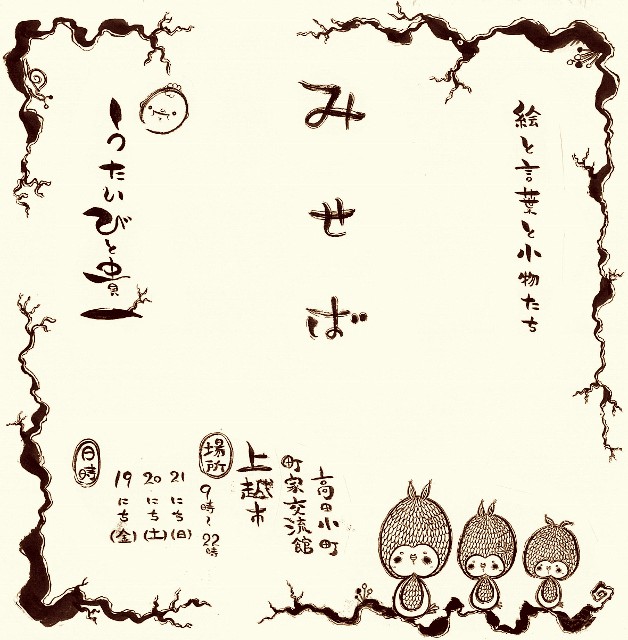 絵と言葉と小物たち
みせば
うたいびと貴一
高田小町
町家交流館
上越市
場所
9時〜22時
21にち(日)
20にち(土)
19にち(金)
日時